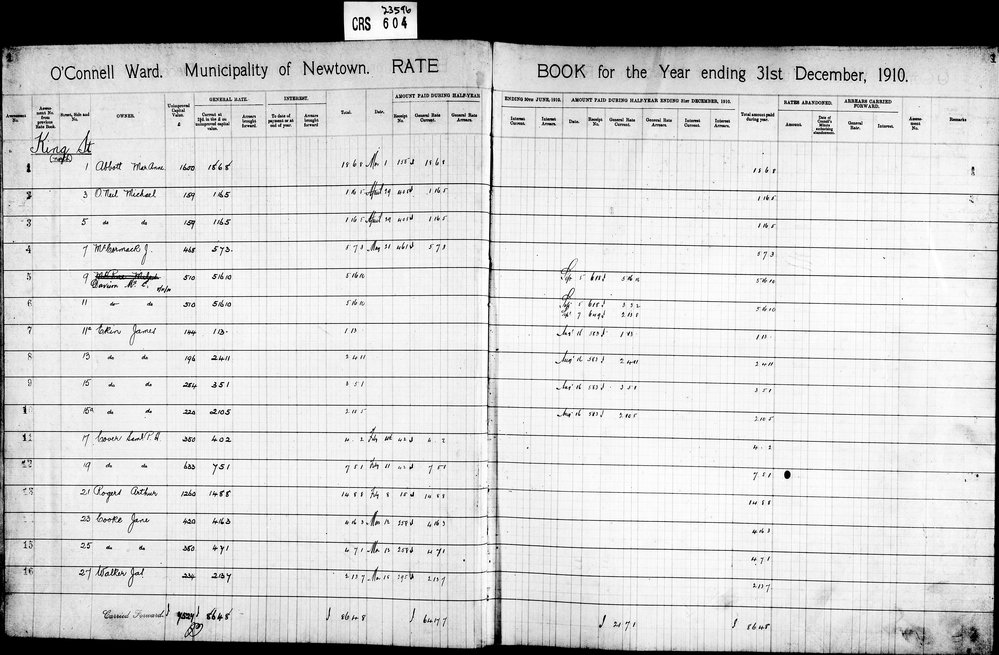 23596
CRS 604
1
1
O'Connell Ward. Municipality of Newtown. RATE BOOK for the Year ending 31st December, 1910.
Assessment No. | Assessment No. from previous Rate Book. | Street, Side and No. | OWNER. | Unimproved Capital Value. £ | GENERAL RATE. | INTEREST. | Total. | Date. | AMOUNT PAID DURING HALF-YEAR ENDING 30TH JUNE, 1910. | AMOUNT PAID DURING HALF-YEAR ENDING 31ST DECEMBER, 1910. | Total amount paid during year. | RATES ABANDONED. | ARREARS CARRIED FORWARD. | Assessment No. | Remarks
Arrears brought forward. | To date of payment or at end of year. | Arrears brought forward. | Receipt No. | General Rate Current. | General Rate Arrears. | Interest Current. | Interest Arrears. | Date. | Receipt No. | General Rate Current. | General Rate Arrears. | Interest Current. | Interest Arrears. | Amount. | General Rate. | Interest.
King St
1 1 Abbott 1600 18 6 8 18 6 8 1 18 6 8 18 6 8
2 3 O'Neil Michael 159 1 16 5 1 16 5 April 29 1 16 5 1 16 5
3 5 do do 159 1 16 5 1 16 5 April 29 1 16 5 1 16 5
4 7 McCormack J. 468 5 7 3 5 7 3 May 31 5 7 3 5 7 3
5 9 510 5 16 10 5 16 10 Sep 5 5 16 10 5 16 10
6 11 do do 510 5 16 10 5 16 10 Sep 5 Sep 7 5 16 10
7 11a Ekin James 144 1 13 - 1 13 Aug 16 583 1 13 1 13
8 13 do do 196 2 4 11 2 4 11 Aug 16 583 2 4 11 2 4 11
9 15 do do 284 3 5 1 3 5 1 Aug 16 583 3 5 1 3 5 1
10 15a do do 220 2 10 5 2 10 5 Aug 16 583 2 10 5 2 10 5
11 17 Cover Saml P. H. 350 4 0 2 4 . 2 Feb 4 . 2 4 . 2
12 19 do do 633 7 5 1 7 5 1 Feb 11 7 5 1 7 5 1
13 21 Rogers Arthur 1260 14 8 8 14 8 8 Feb 8 14 8 8 14 8 8
23 Cooke Jane 420 4 16 3 4 16 3 4 16 3 4 16 3
15 25 do do 380 4 7 1 4 7 1 4 7 1 4 7 1
16 27 Walker Jas 234 2 13 7 2 13 7 2 13 7 2 13 7
Carried Forward £ 7527 £ 86 4 8 £ 86 4 8 £ 64 17 7 £ 21 7 1 £ 86 4 8